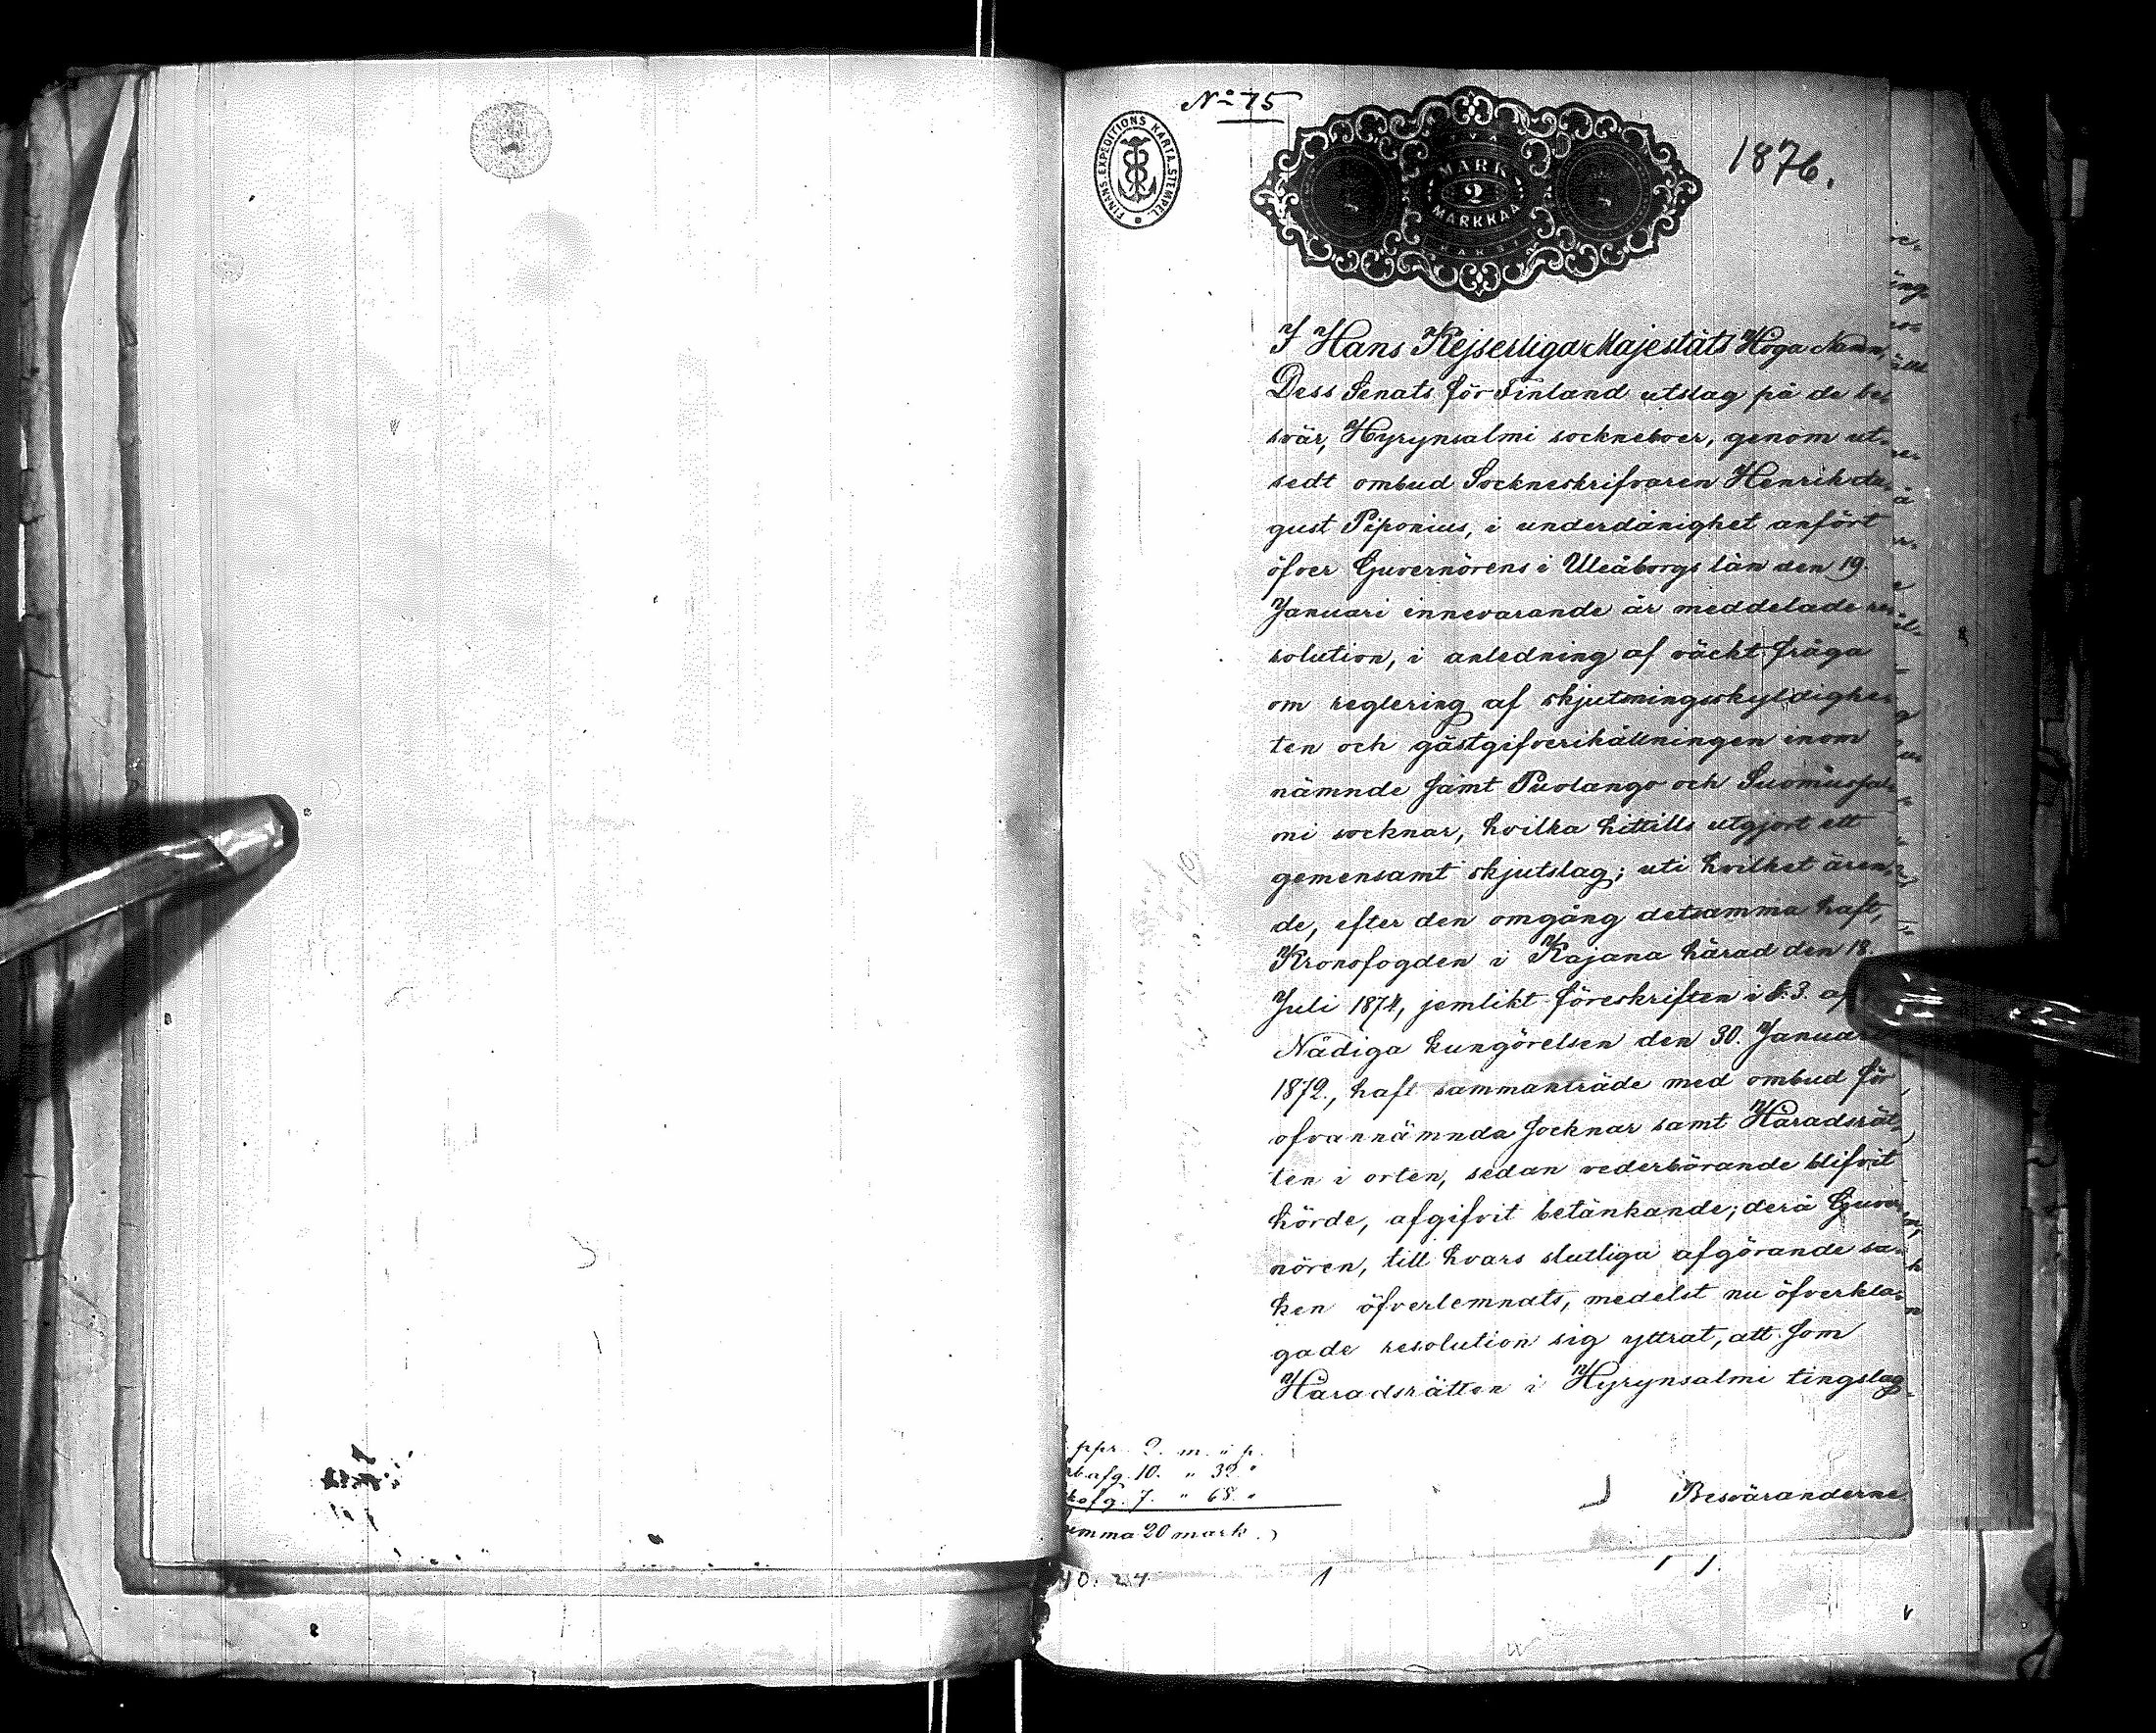 No 75
FINANS. EXPEDITIONS KARTA. STEMPEL.
MARK
2
MARKKAA
KAKSI
1876.
I Hans Kejserliga Majestäts Höga Namn,
Dess Senats för Finland utslag på de be-
svär, Hyrynsalmi sockneboer, genom ut-
sedt ombud Sockneskrifvaren Henrik Au-
gust Piponius, i underdånighet anfört
öfver Guvernörens i Uleåborgs län den 19.
Januari innevarande år meddelade re-
solution, i anledning af väckt fråga
om reglering af skjutsningsskyldighe-
ten och gästgifverihållningen inom
nämnde jämt Puolango och Suomussal-
mi socknar, hvilka hittills utgjort ett
gemensamt skjutslag; uti hvilket ären-
de, efter den omgång detsamma haft,
Kronofogden i Kajana härad den 18.
Juli 1874, jemlikt föreskriften i §. 3. af
Nådiga kungörelsen den 30. Janua
1872, haft sammanträde med ombud för
ofvannämnda socknar samt Häradsrät-
ten i orten, sedan vederbörande blifvit
hörde, afgifvit betänkande; derå Guver-
nören, till hvars slutliga afgörande sa-
ken öfverlemnats, medelst nu öfverkla-
gade resolution sig yttrat, att som
Häradsrätten i Hyrynsalmi tingslag
ppr. 2. m. " p.
afg. 10. " 32. "
afg. 7. " 68. "
umma 20 mark.)
Besväranderne